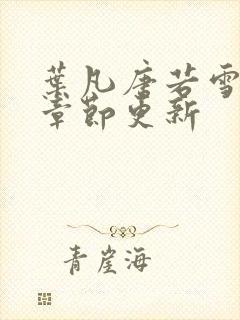 葉凡唐若雪
章節更新
青崖海